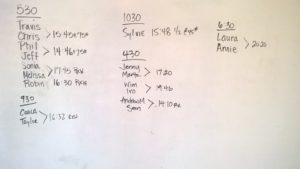 530
Travis
Chris > 15:45
Phil
Jeff > 14:46
Sonia
Melissa > 17:45 RX
Robin 16:30
930
Carla
Taylor > 16:33
1030
Sylvie 15:48 1/2
430
Jenny
> 17:20
Wim
Iro > 19:46
Andrew M
Sean > 14:10
630
Laura
Annie > 20:20